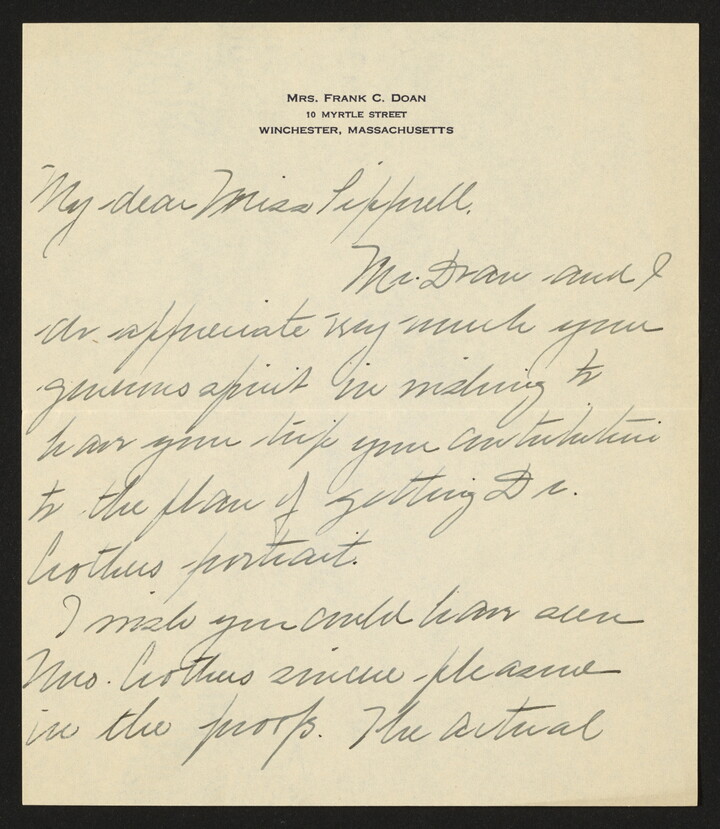 MRS. FRANK C. DOAN
10 MYRTLE STREET
WINCHESTER, MASSACHUSETTS
My dear Miss Sipprell,
Mr. Doan and I
do appreciate very much your
generous spirit in wishing to
have your trip your contribution
to the plan of getting Dr.
Crothers portrait.
I wish you could have seen
Mrs. Crothers sincere pleasure
in the proofs. The actual